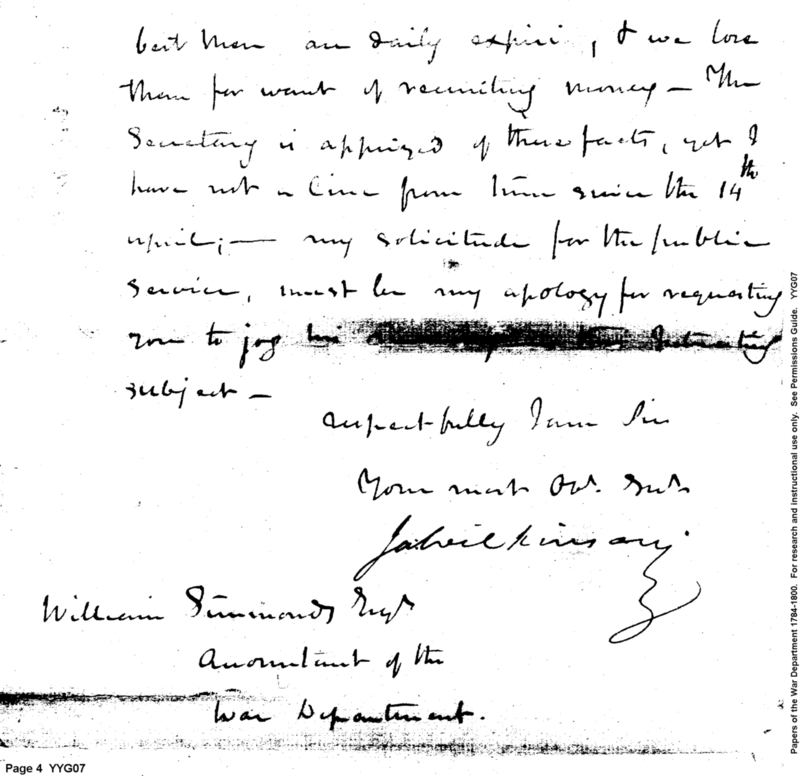 best Men are daily expiri , & we lose
them for want of recruiting money — The
Secretary is apprized of these facts, yet I
have not a line from him since the 14th
april; — my solicitude for the public
service, must be my apology for requesting
you to jog his Interesting
subject —
respectfully I am Sir
Your most Obt. Servt.
Ja Wilkinson
William Simmonds Esqr
Accountant of the
War Department.
Page 4 YYG07
Papers of the War Department 1784-1800. For research and instructional use only. See Permissions Guide. YYG07